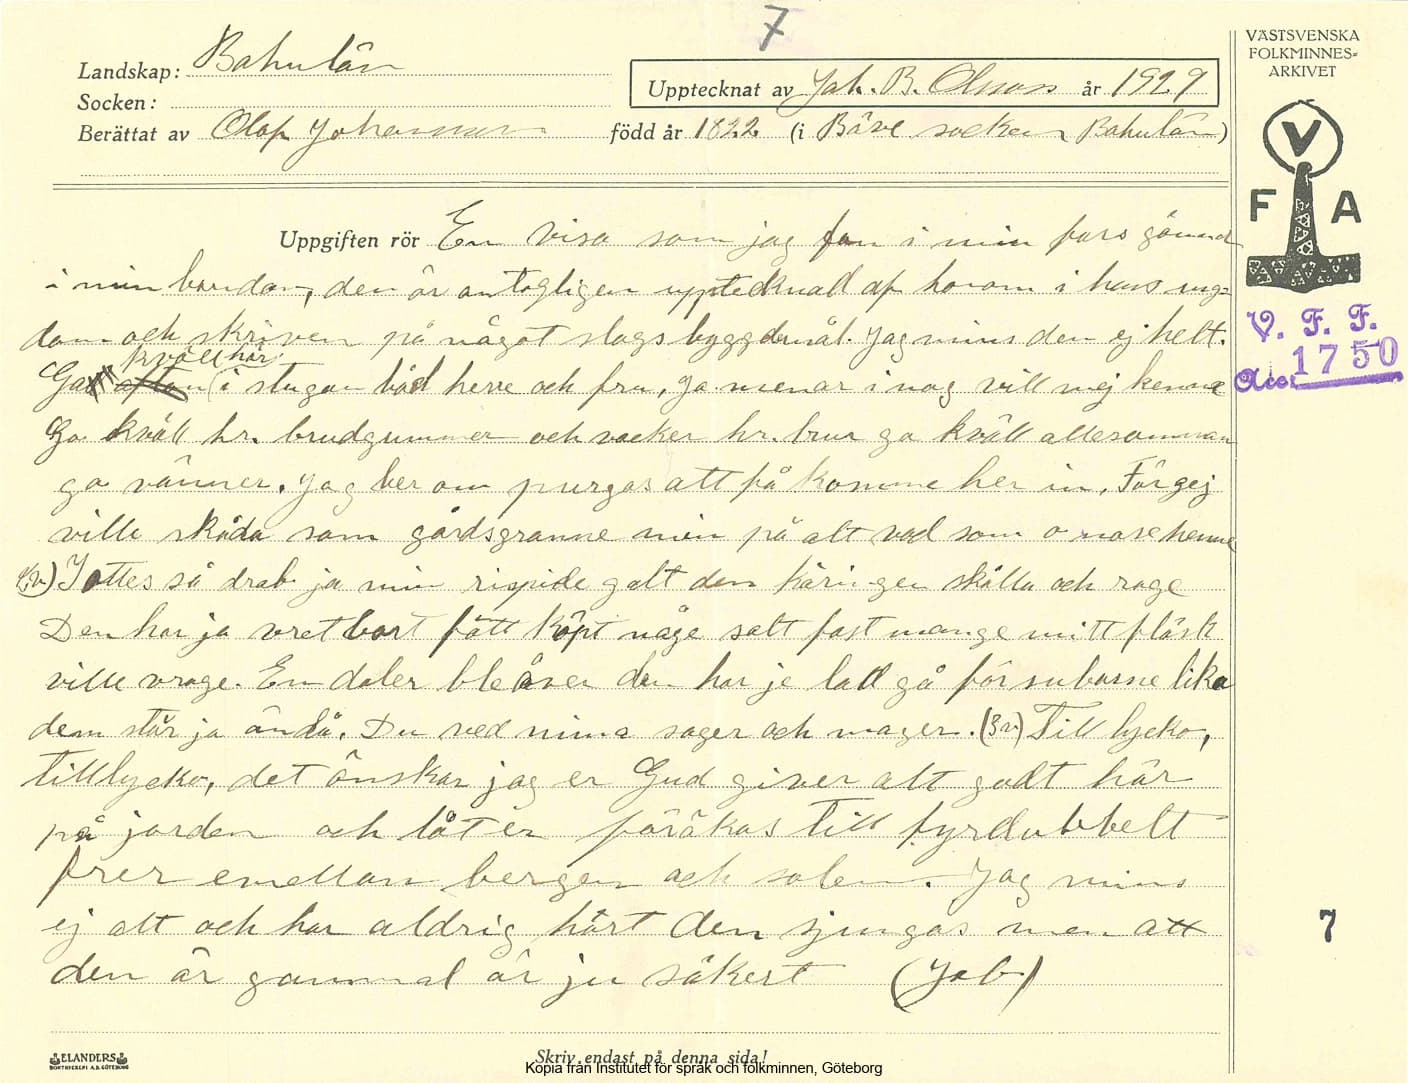 7
VÄSTSVENSKA
FOLKMINNES=
ARKIVET
Landskap: Bahulän
Upptecknat av Joh. B. Olsson år 1929
Socken:
Berättat av Olof Johansson född år 1822 (i Bäve socken Bahulän)
V
F A
Uppgiften rör En visa som jag fan i min fars gömmor
i min barndom, den är antagligen upptecknad af honom i hans ung=
dom och skriven på något slags byggdemål. Jag mins den ej helt.
V. F. F.
Acc. 1750
kväll här
Ga i stugan båd herre och fru, ja menar i nog vill mej kenne
Go kväll hr. brudgummer och vacker hr. brur ga kväll allesamman
go vänner. Jag ber om purgas att få komme her in, För gej
ville skåda som gårdsgranne min på alt vad som o mase henne
(2,v.) Jottes så drab ja min rispide galt den käringen skålla och rage
Den har ja vret bort fått köpt någe salt fast mange mitt fläsk
ville vrage. En daler ble över den har je latt gå för subasne lika
dem står ja ändå. Du ved mina sager och mager. (3 v.) Till lycko,
till lycko, det önskar jag er Gud giver alt godt här
på jorden och låt er förökas till fyrdubbelt
frer emellan bergen och solen. Jag mins
ej alt och har aldrig hört den sjungas men att
7
den är gammal är ju säkert (Job)
ELANDERS
BOKTRYCKERI A.B. GÖTEBORG
Skriv endast på denna sida!
Kopia från Institutet för språk och folkminnen, Göteborg